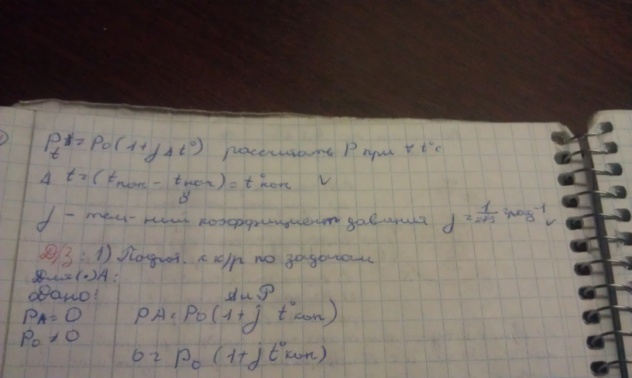 Pt = P0(1+γΔt°) рассчитать P при ∀ t°C
Δt=(tкон - tнач)= t°кон
γ - тем-ный коэффициент давления γ = 1/273 град⁻¹
Д/З: 1) Подгот. к к/р по задачам
Для(•)A:
Дано:
PA=0 PA=P0(1+γ t°кон)
P0≠0
0= P0 (1+γt°кон)